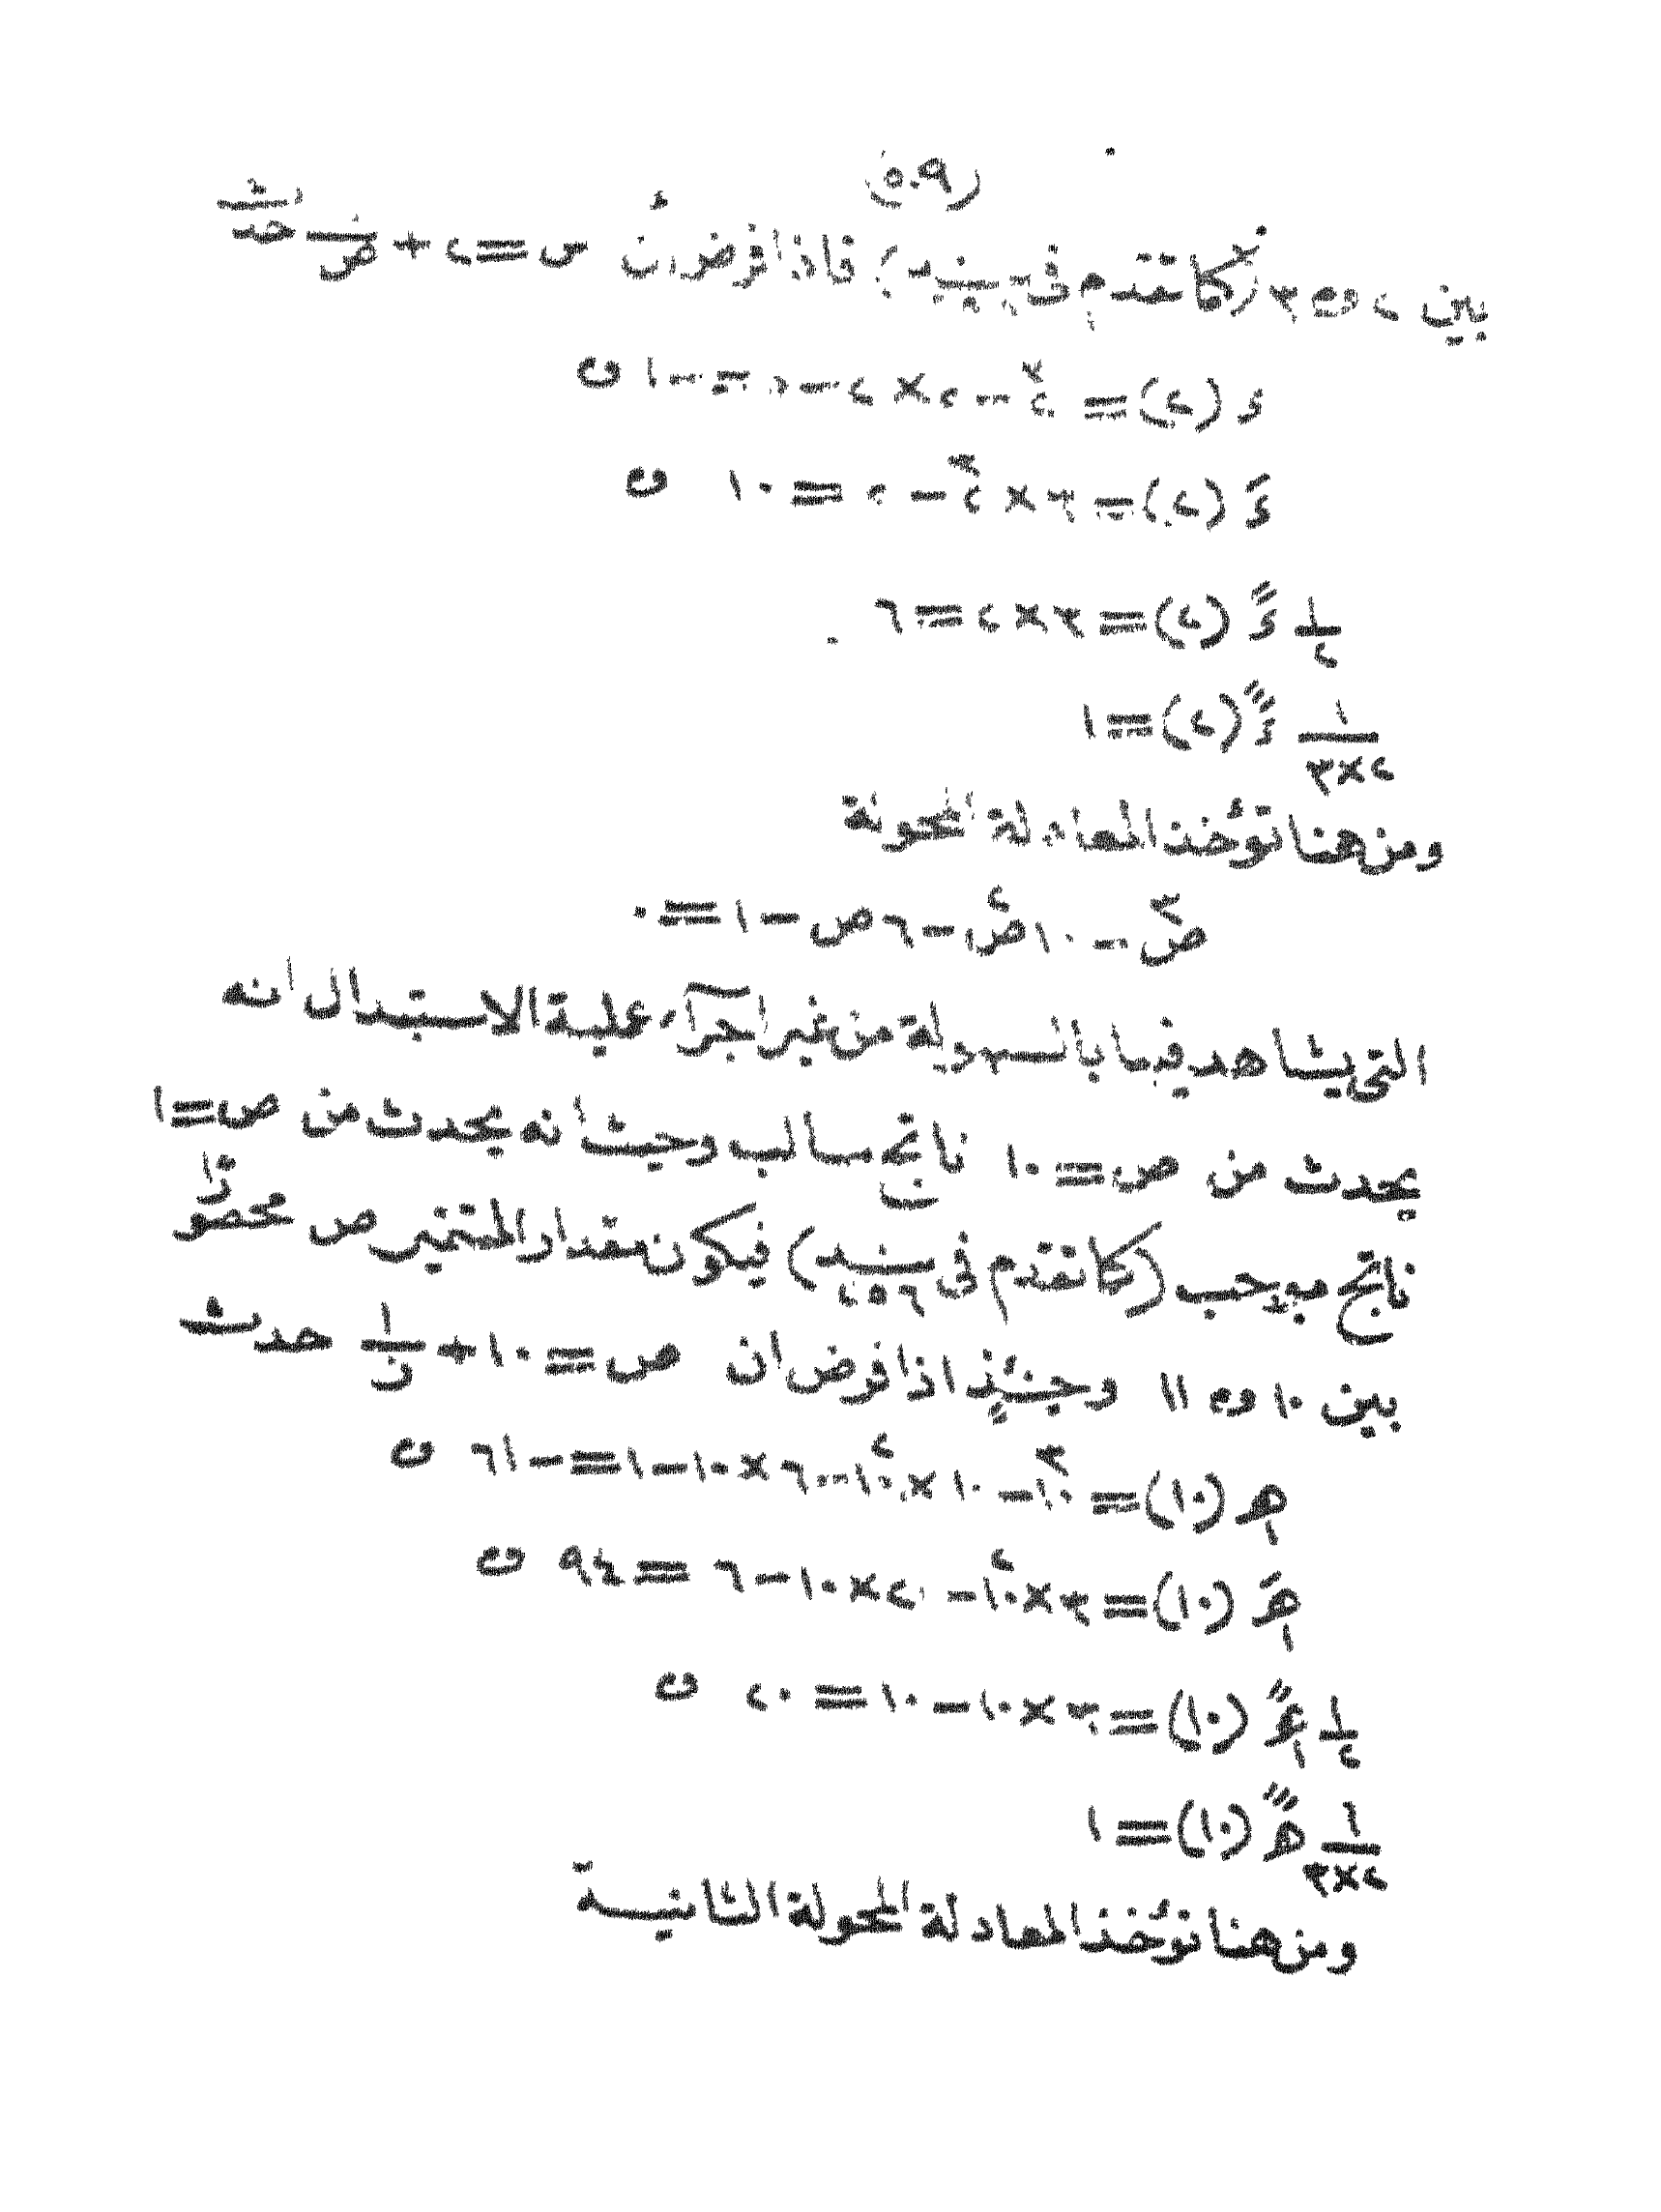 (٥٠٩)
بين ٢ و ٣ (كما تقدم في بند) فاذا فرض ان س = ٢ + ١/ص حدث
د (٢) = ٢^٣ - ٢ × ٢ - ٥ = - ١ و
دَ (٢) = ٣ × ٢^٢ - ٢ = ١٠ و
١/٢ دً (٢) = ٣ × ٢ = ٦
١/(٢×٣) د (٢) = ١
ومن هنا تؤخذ المعادلة المحولة
ص^٣ - ١٠ ص^٢ - ٦ ص - ١ = ٠
التي يشاهد فيها بالسهولة من غير اجرآء عملية الاستبدال انه
يحدث من ص = ١٠ ناتج سالب وحيث انه يحدث من ص = ١١
ناتج موجب (كما تقدم في بند ٢٥٦) فيكون مقدار المتغير ص محصورا
بين ١٠ و ١١ وحينئذ اذا فرض ان ص = ١٠ + ١/ز حدث
ﻫ (١٠) = ١٠^٣ - ١٠ × ١٠^٢ - ٦ × ١٠ - ١ = - ٦١ و
ﻫَ (١٠) = ٣ × ١٠^٢ - ٢٠ × ١٠ - ٦ = ٩٤ و
١/٢ ﻫً (١٠) = ٣ × ١٠ - ١٠ = ٢٠ و
١/(٢×٣) ﻫ (١٠) = ١
ومن هنا تؤخذ المعادلة المحولة الثانية